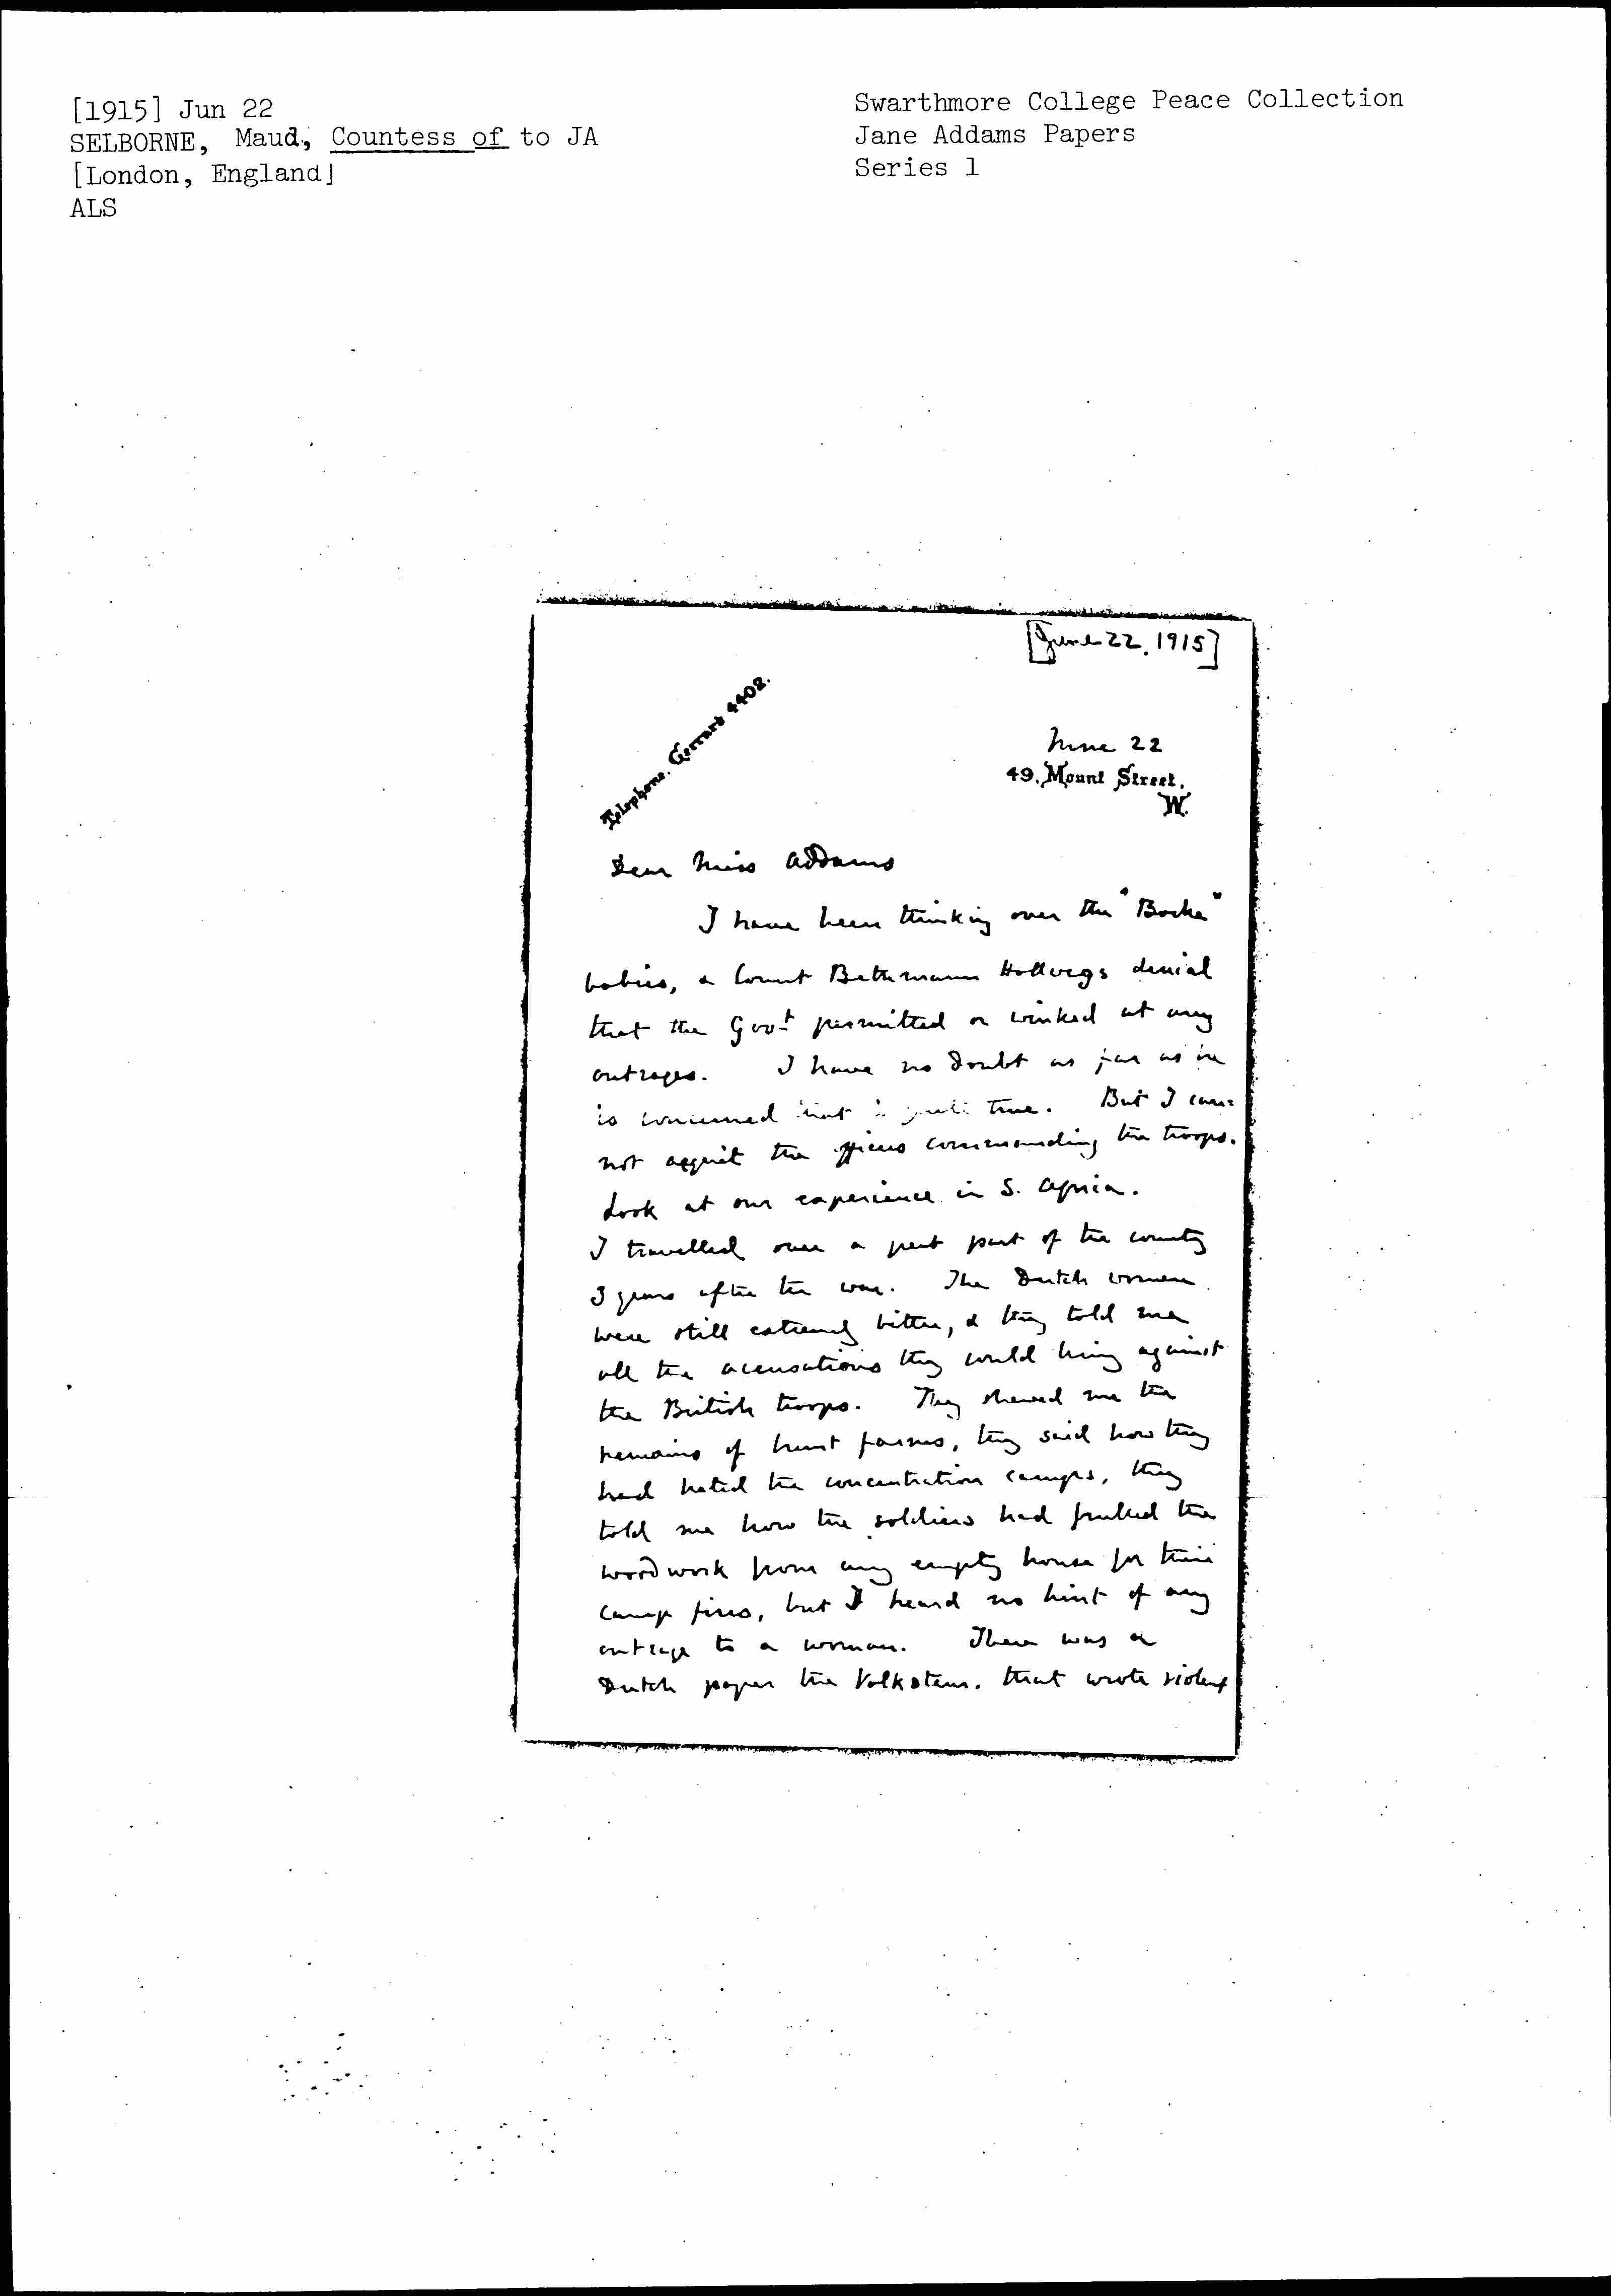 [1915] Jun 22
SELBORNE, Maud, Countess of to JA
[London, England]
ALS
Swarthmore College Peace Collection
Jane Addams Papers
Series 1
[June 22, 1915]
Telephone. Gerrard 4402.
June 22
49, Mount Street,
W.
Dear Miss Addams
I have been thinking over the "Boche"
babies, & Count Bethmann Hollvegs denial
that the Govt permitted or winked at any
outrages. I have no doubt as far as he
is concerned that is quite true. But I can=
not acquit the officers commanding the troops.
Look at our experience in S. Africa.
I travelled over a great part of the country
3 years after the war. The Dutch women
were still extremely bitter, & they told me
all the accusations they could bring against
the British troops. They shewed me the
remains of burnt farms, they said how they
had hated the concentration camps, they
told me how the soldiers had pulled the
woodwork from any empty house for their
camp fires, but I heard no hint of any
outrage to a woman. There was a
Dutch paper the Volkstem. that wrote violent